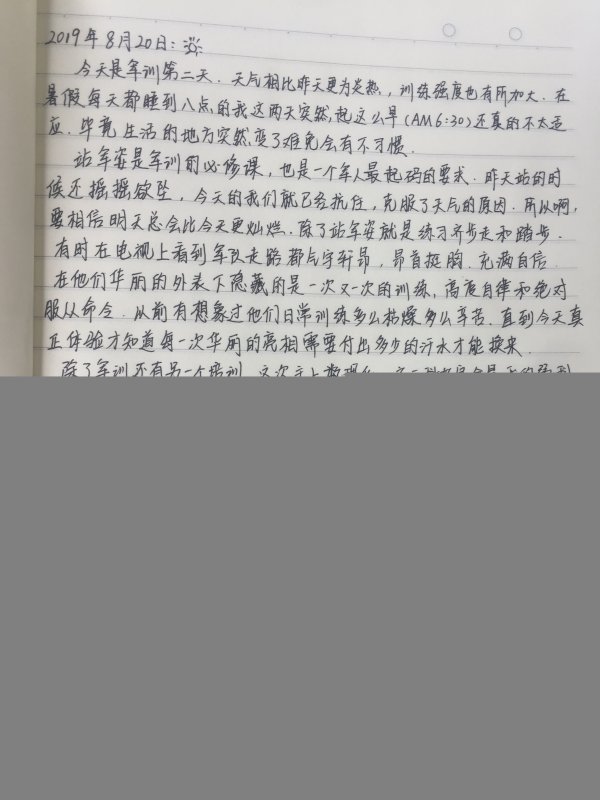 2019年8月20日:
今天是军训第二天.天气相比昨天更为炎热,训练强度也有所加大.在
暑假每天都睡到八点的我这两天突然起这么早(AM6:30)还真的不太适
应.毕竟生活的地方突然变了难免会有不习惯.
站军姿是军训的必修课,也是一个军人最起码的要求.昨天站的时
候还摇摇欲坠,今天的我们就已经抗住,克服了天气的原因.所以啊,
要相信明天总会比今天更灿烂.除了站军姿就是练习齐步走和踏步.
有时在电视上看到军队走路都气宇轩昂,昂首挺胸.充满自信.
在他们华丽的外表下隐藏的是一次又一次的训练,高度自律和绝对
服从命令.从前有想象过他们日常训练多么枯燥多么辛苦.直到今天真
正体验才知道每一次华丽的亮相需要付出多少的汗水才能换来.
除了军训还有另一个培训.